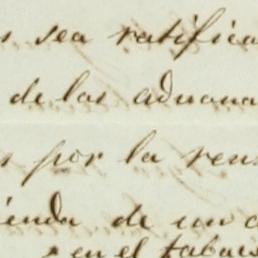 s sea ratifica
de las aduana
s por la ren
ienda de un c
en el tabac